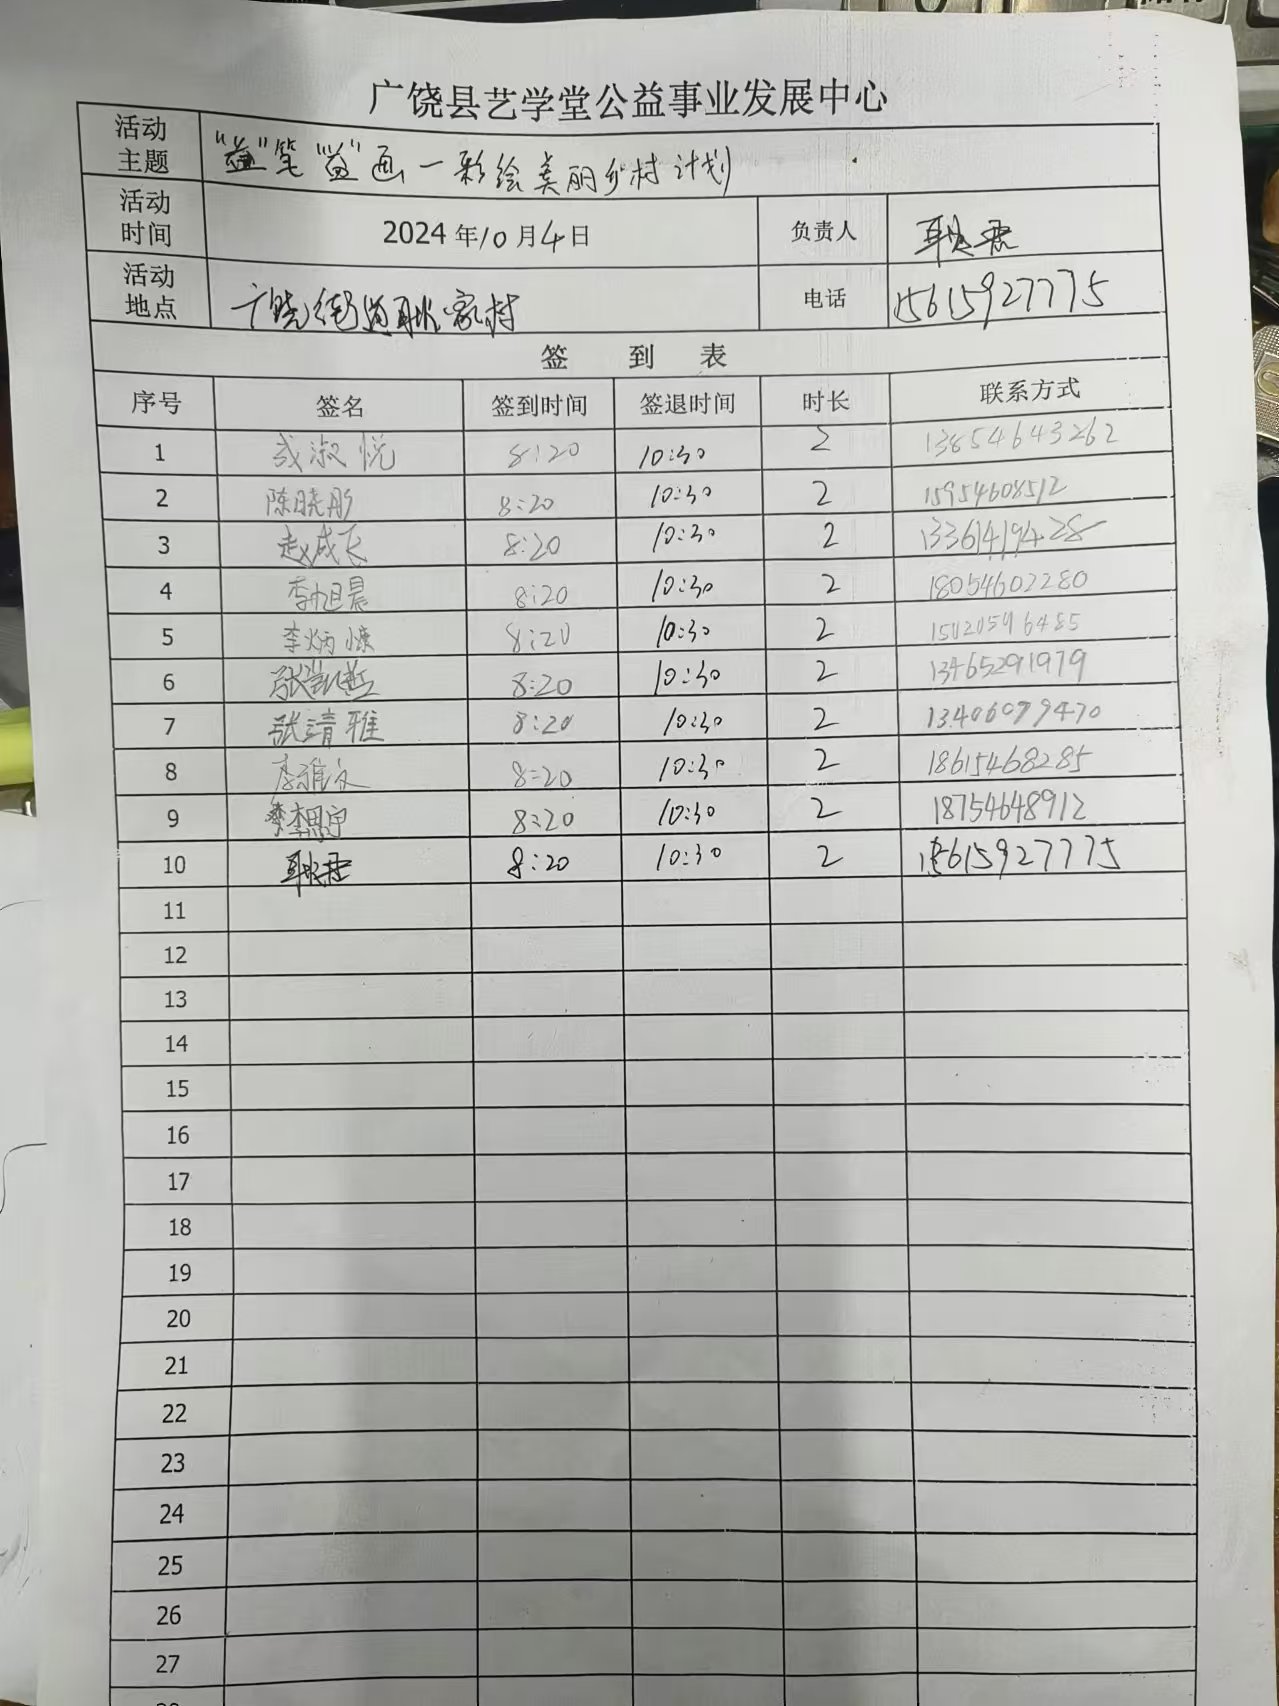 广饶县艺学堂公益事业发展中心
活动主题 "益"笔"益"画一彩绘美丽乡村计划
活动时间 2024年10月4日 负责人
活动地点 广饶街道耿家村 电话 15615927775
签 到 表
序号 签名 签到时间 签退时间 时长 联系方式
1 成淑悦 8:20 10:30 2 13854643262
2 陈晓彤 8:20 10:30 2 15954608512
3 赵成长 8:20 10:30 2 13361419428
4 李旭晨 8:20 10:30 2 18054602280
5 李炳慷 8:20 10:30 2 15020596485
6 张凯 8:20 10:30 2 13465291979
7 张清雅 8:20 10:30 2 13406099470
8 李雅文 8:20 10:30 2 18615468285
9 李思宇 8:20 10:30 2 18754648912
10 8:20 10:30 2 15615927775
11
12
13
14
15
16
17
18
19
20
21
22
23
24
25
26
27